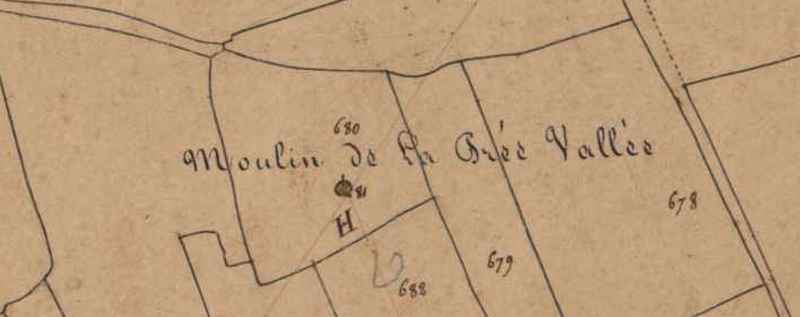 680
Moulin de la Prée Vallée
81
H
678
679
688